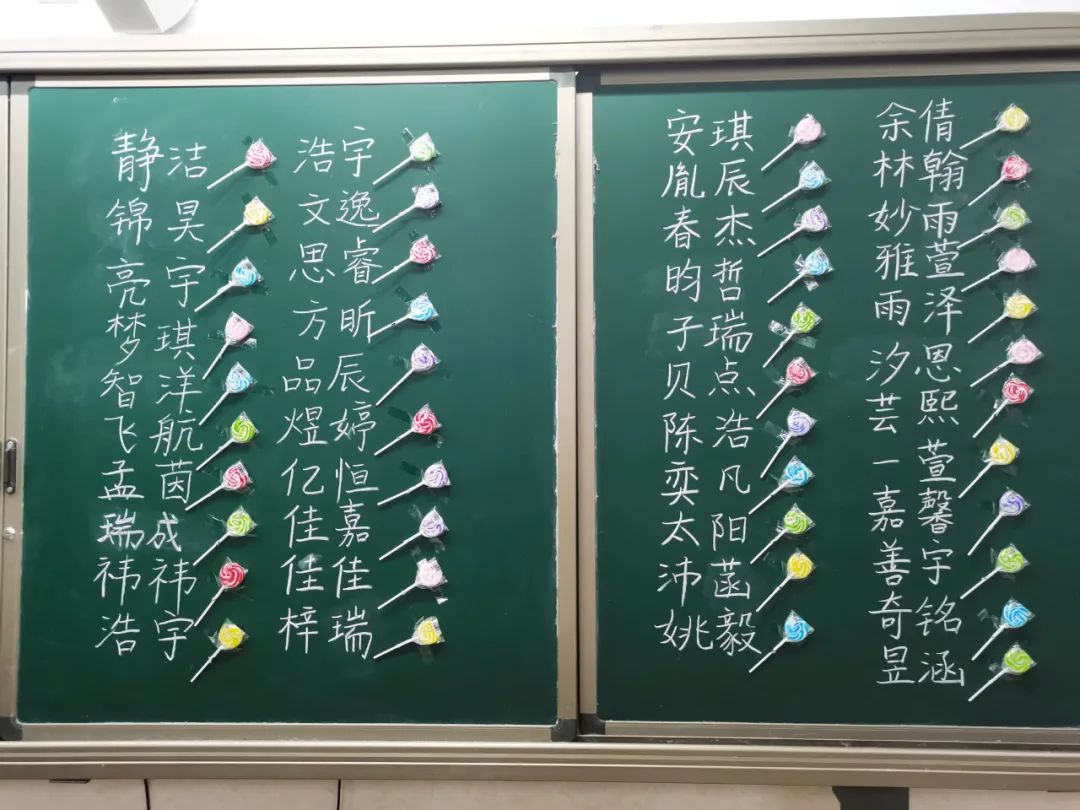 静洁
锦昊
亮宇
梦琪
智洋
飞航
孟茵
瑞成
祎祎
浩宇
浩宇
文逸
思睿
方昕
品辰
煜婷
亿恒
佳嘉
佳佳
梓瑞
安琪
胤辰
春杰
昀哲
子瑞
贝点
陈浩
奕凡
太阳
沛菡
姚毅
余倩
林翰
妙雨
雅萱
雨泽
汐恩
芸熙
一萱
嘉馨
善宇
奇铭
昱涵